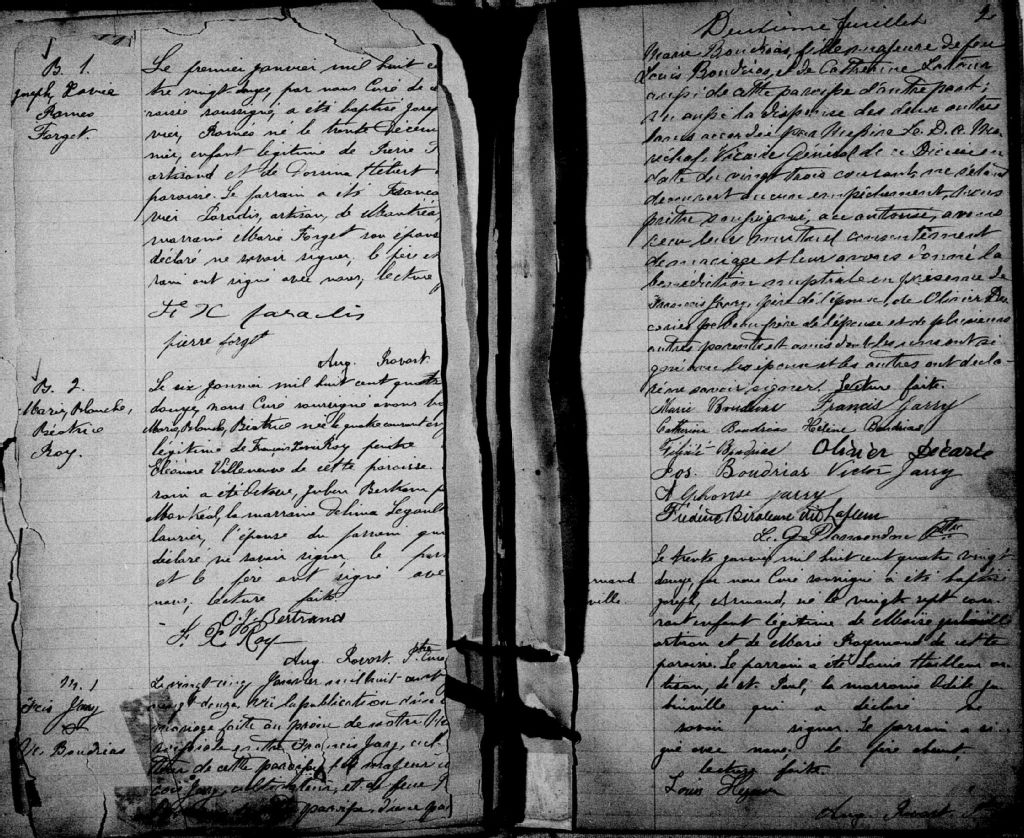 B. 1.
Joseph, Xavier
Romeo
Forget.
Le premier janvier mil huit c
tre vingt douze, par nous Curé de
roisse soussigné, a été baptisé Josep
vier, Romeo né le trente Décem
nier, enfant légitime de Pierre
artisan et de Hébert
paroisse. Le parrain a été Franço
vier Paradis, artisan, de Montréa
marraine Marie Forget son épous
déclaré ne savoir signer, le père et
rain ont signé avec nous, lecture
F. X paradis
pierre forget
Aug. Provost.
B. 2.
Marie, Blanche,
Béatrice
Roy.
Le six Janvier mil huit cent quatre
douze, nous Curé soussigné avons ba
Marie, Blanche, Béatrice née le quatre courant en
légitime de François Roy peintre
Eléanore Villeneuve de cette paroisse.
rain a été Octave, Julien Bertrand
Montréal, la marraine Delima Legault
laurier, l'épouse du parrain qui
déclaré ne savoir signer, le par
et le père ont signé ave
nous, lecture faite.
O. J. Bertrand
F. X Roy
Aug. Provost Ptre Curé
M. 1
Fcis Jarry
&
Ve. Boudrias
Le vingt cinq Janvier mil huit cent
vingt-douze, vu la publication d'un
mariage faite au prône de notre
entre Francis Jarry, cul
teur de cette paroisse, fils majeur
cois Jarry, cultivateur, et de feue
paroisse, d'une part
2
Deuxième feuillet
Marie Boudrias, fille majeure de feu
Louis Boudrias, et de Catherine Latour
aussi de cette paroisse d'autre part;
vu aussi la dispense des deux autres
bans accordée par Messire L. D. A. Ma
réchal, Vicaire Général de ce Diocèse en
date du vingt trois courant, ne s'étant
découvert aucun empêchement, nous
prêtre soussigné, autorisé, avons
reçu leur mutuel consentement
de mariage et leur avons donné la
bénédiction nuptiale en présence de
François Jarry, père de l'époux, de Olivier De
carie beau-père de l'épouse et de plusieurs
autres parents et amis dont les uns ont si
gné les époux et les autres ont décla
ré ne savoir signer. Lecture faite.
Marie Boudrias Francis Jarry
Catherine Boudrias Hélène Boudrias
Boudrias Olivier Décarie
Jos. Boudrias Victor Jarry
Alphonse jarry
Frédéric dit Lafleur
L. G. Plamondon Ptre
rmand
ville.
Le trente janvier mil huit cent quatre vingt
douze, par nous Curé soussigné a été baptisé
Joseph, Armand, né le vingt sept cou
rant enfant légitime de Moïse jubinville
artisan et de Marie Raymond de cette
paroisse. Le parrain a été Louis ar
tisan, de St. Paul, la marraine Odile Ju
binville qui a déclaré ne
savoir signer. Le parrain a si
gné avec nous, le père absent,
lecture faite.
Louis
Aug. Provost